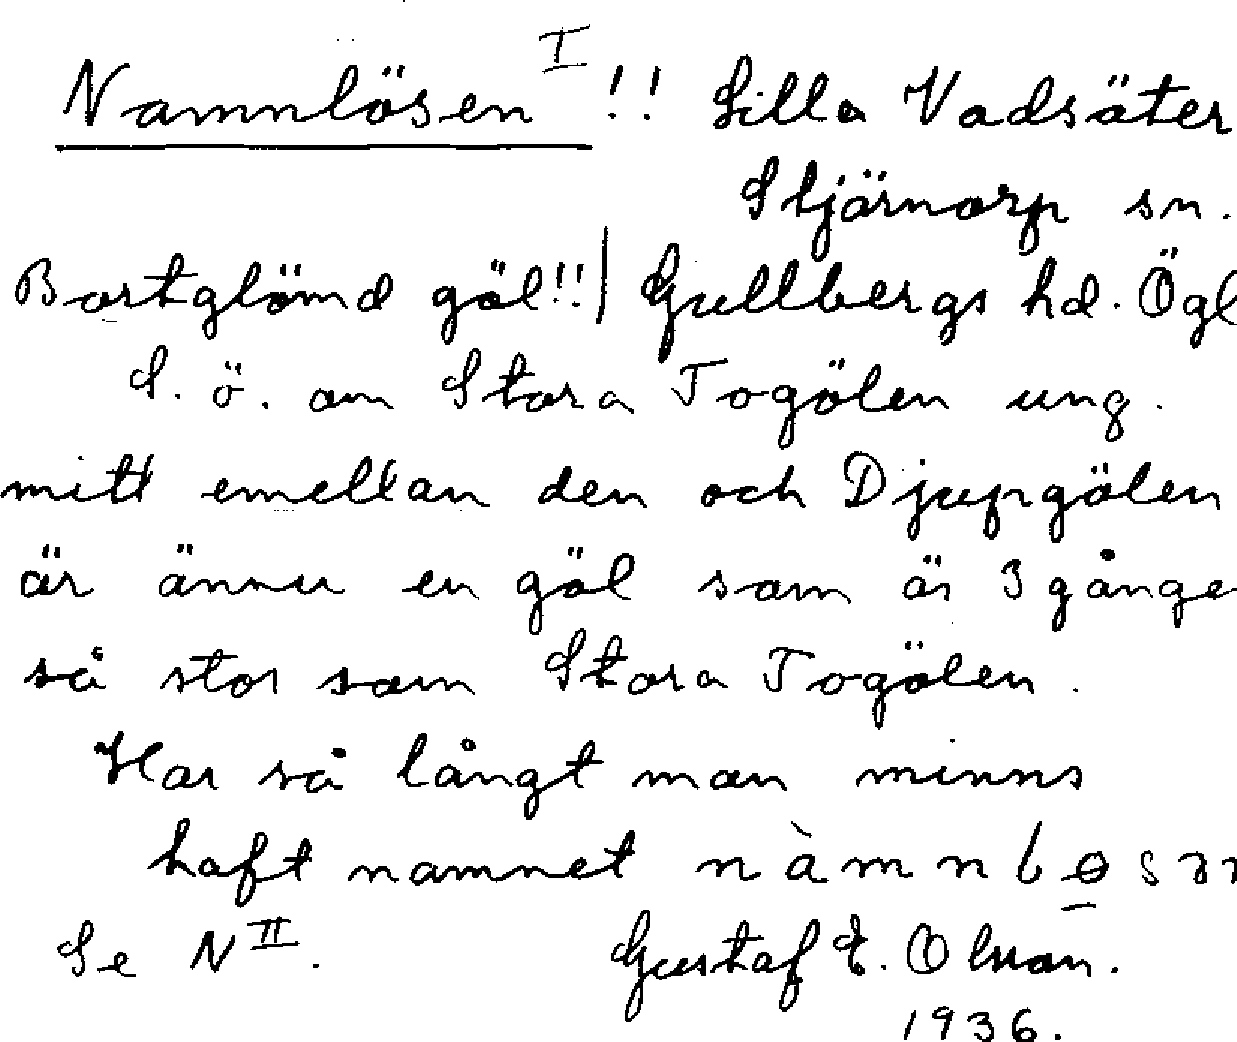 Namnlösen I !! Lilla Vadsäter
Stjärnorp sn.
Bortglömd göl!! | Gullbergs hd. Ögl
S. ö. om Stora Togölen ung.
mitt emellan den och Djupgölen
är ännu en göl som är 3 gånge
så stor som Stora Togölen.
Har så långt man minns
haft namnet
Se N II. Gustaf E. Olson.
1936.